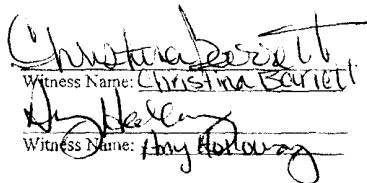 Christina Barrett
Witness Name: Christina Barrett
Amy Holloway
Witness Name: Amy Holloway